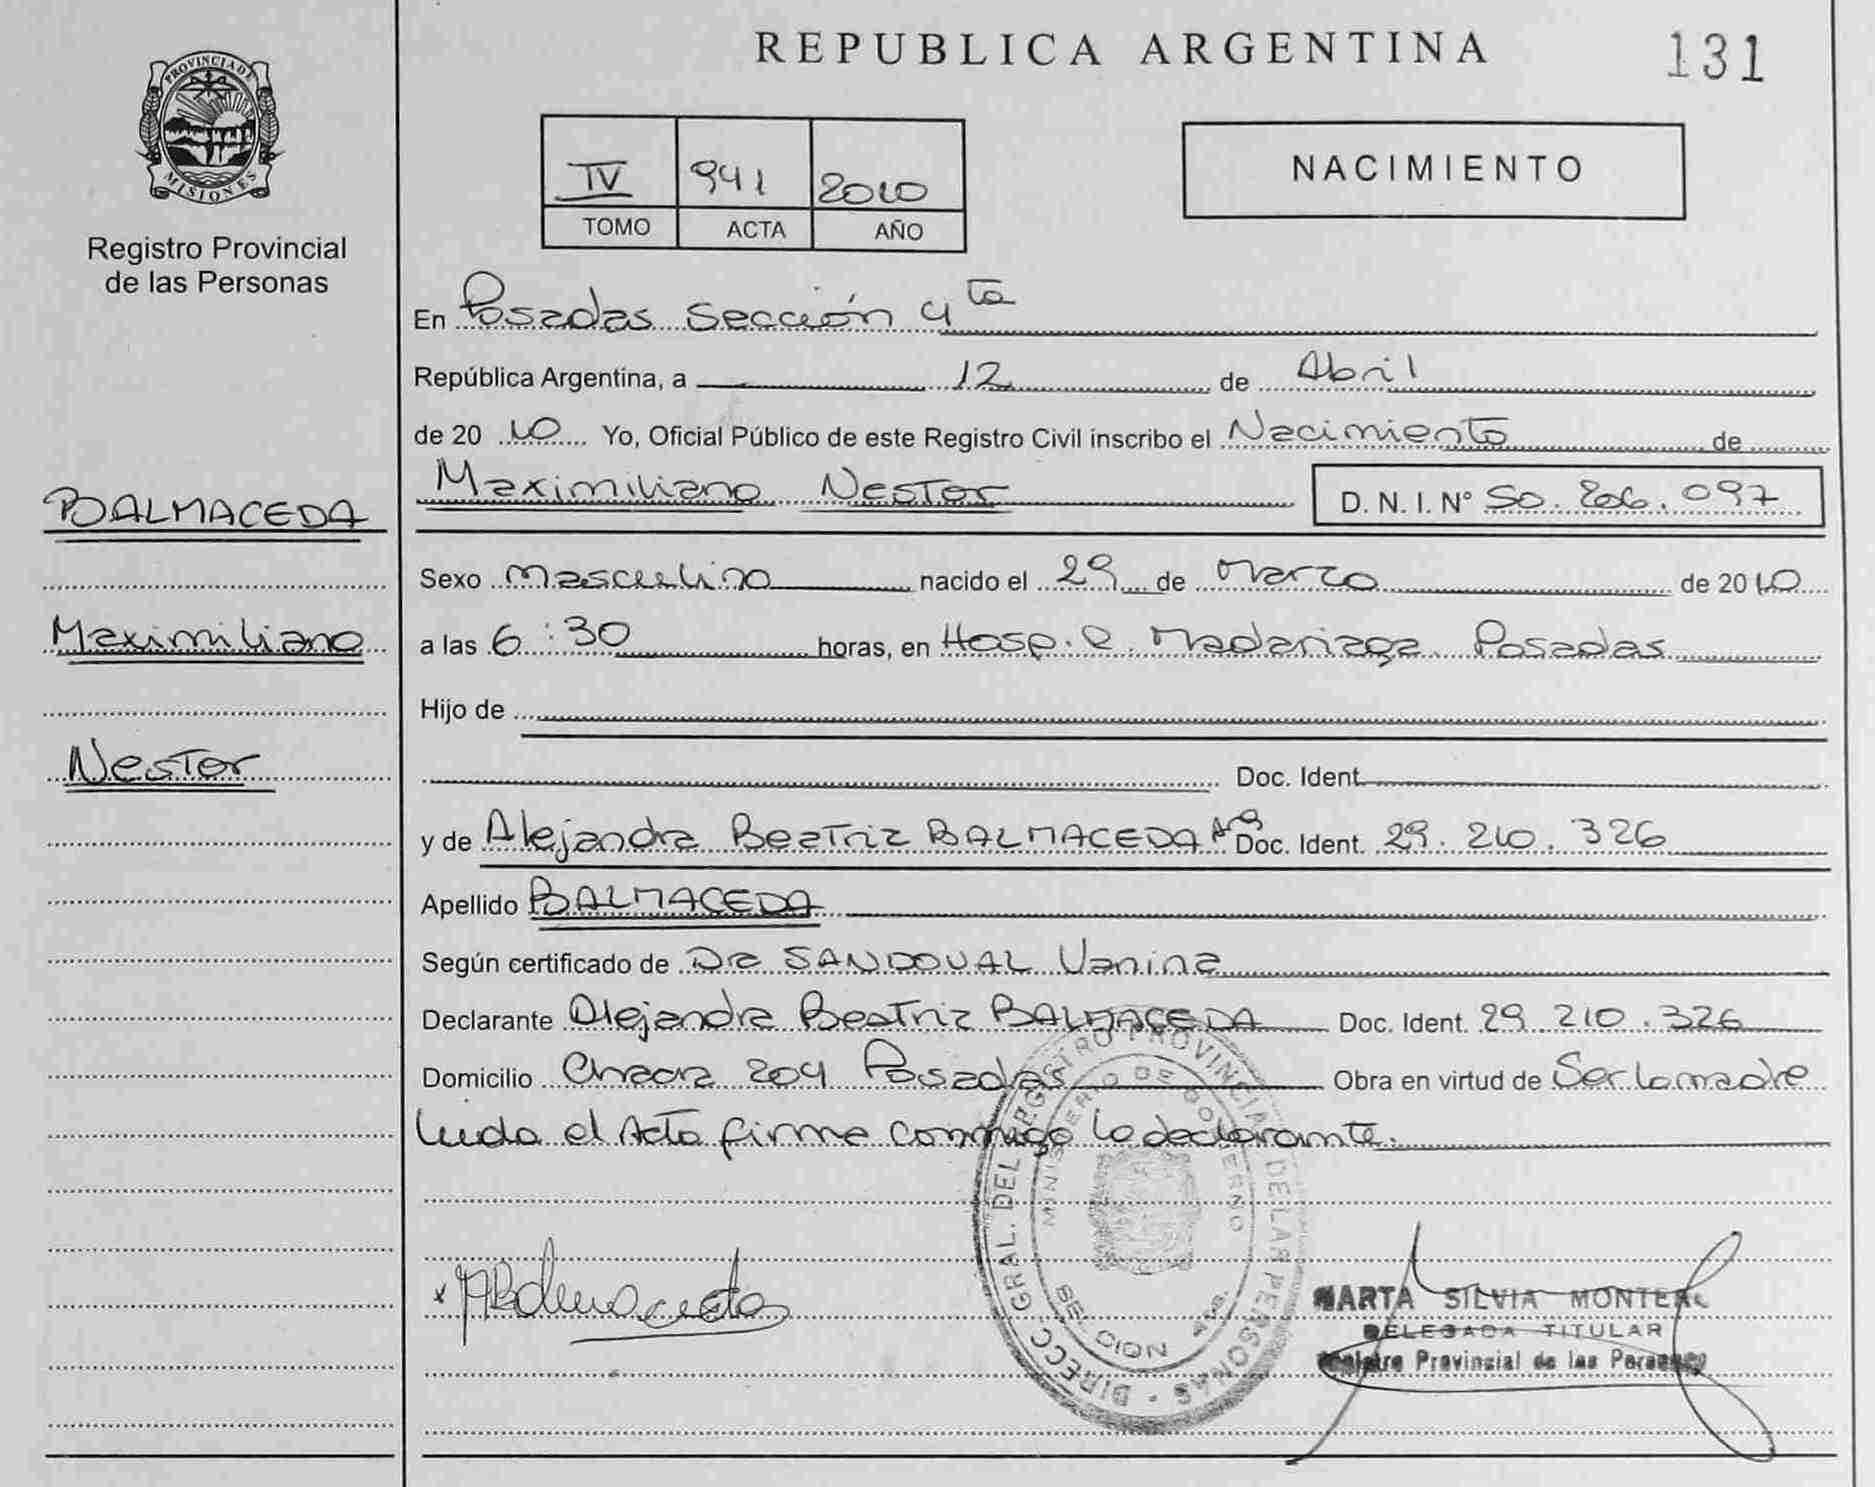 REPUBLICA ARGENTINA
131
PROVINCIA DE
MISIONES
Registro Provincial
de las Personas
IV 941 2010
TOMO ACTA AÑO
NACIMIENTO
En Posadas Sección 4ta
República Argentina, a 12 de Abril
de 20 10 Yo, Oficial Público de este Registro Civil inscribo el Nacimiento de
BALMACEDA
Maximiliano Nestor D. N. I. N° 50.206.097
Sexo masculino nacido el 29 de Marzo de 2010
Maximiliano
a las 6:30 horas, en Hosp. R. Madariaga Posadas
Hijo de
Nestor
Doc. Ident.
y de Alejandra Beatriz BALMACEDA Arg Doc. Ident. 29.210.326
Apellido BALMACEDA
Según certificado de Dra SANDOVAL Vanina
Declarante Alejandra Beatriz BALMACEDA Doc. Ident. 29.210.326
Domicilio Chacra 204 Posadas Obra en virtud de Ser la madre
Leida el Acta firma conmigo la declarante.
DIRECC. GRAL. DEL REGISTRO PROVINCIAL DE LAS PERSONAS
MINISTERIO DE GOBIERNO
MARTA SILVIA MONTERO
DELEGADA TITULAR
Registro Provincial de las Personas